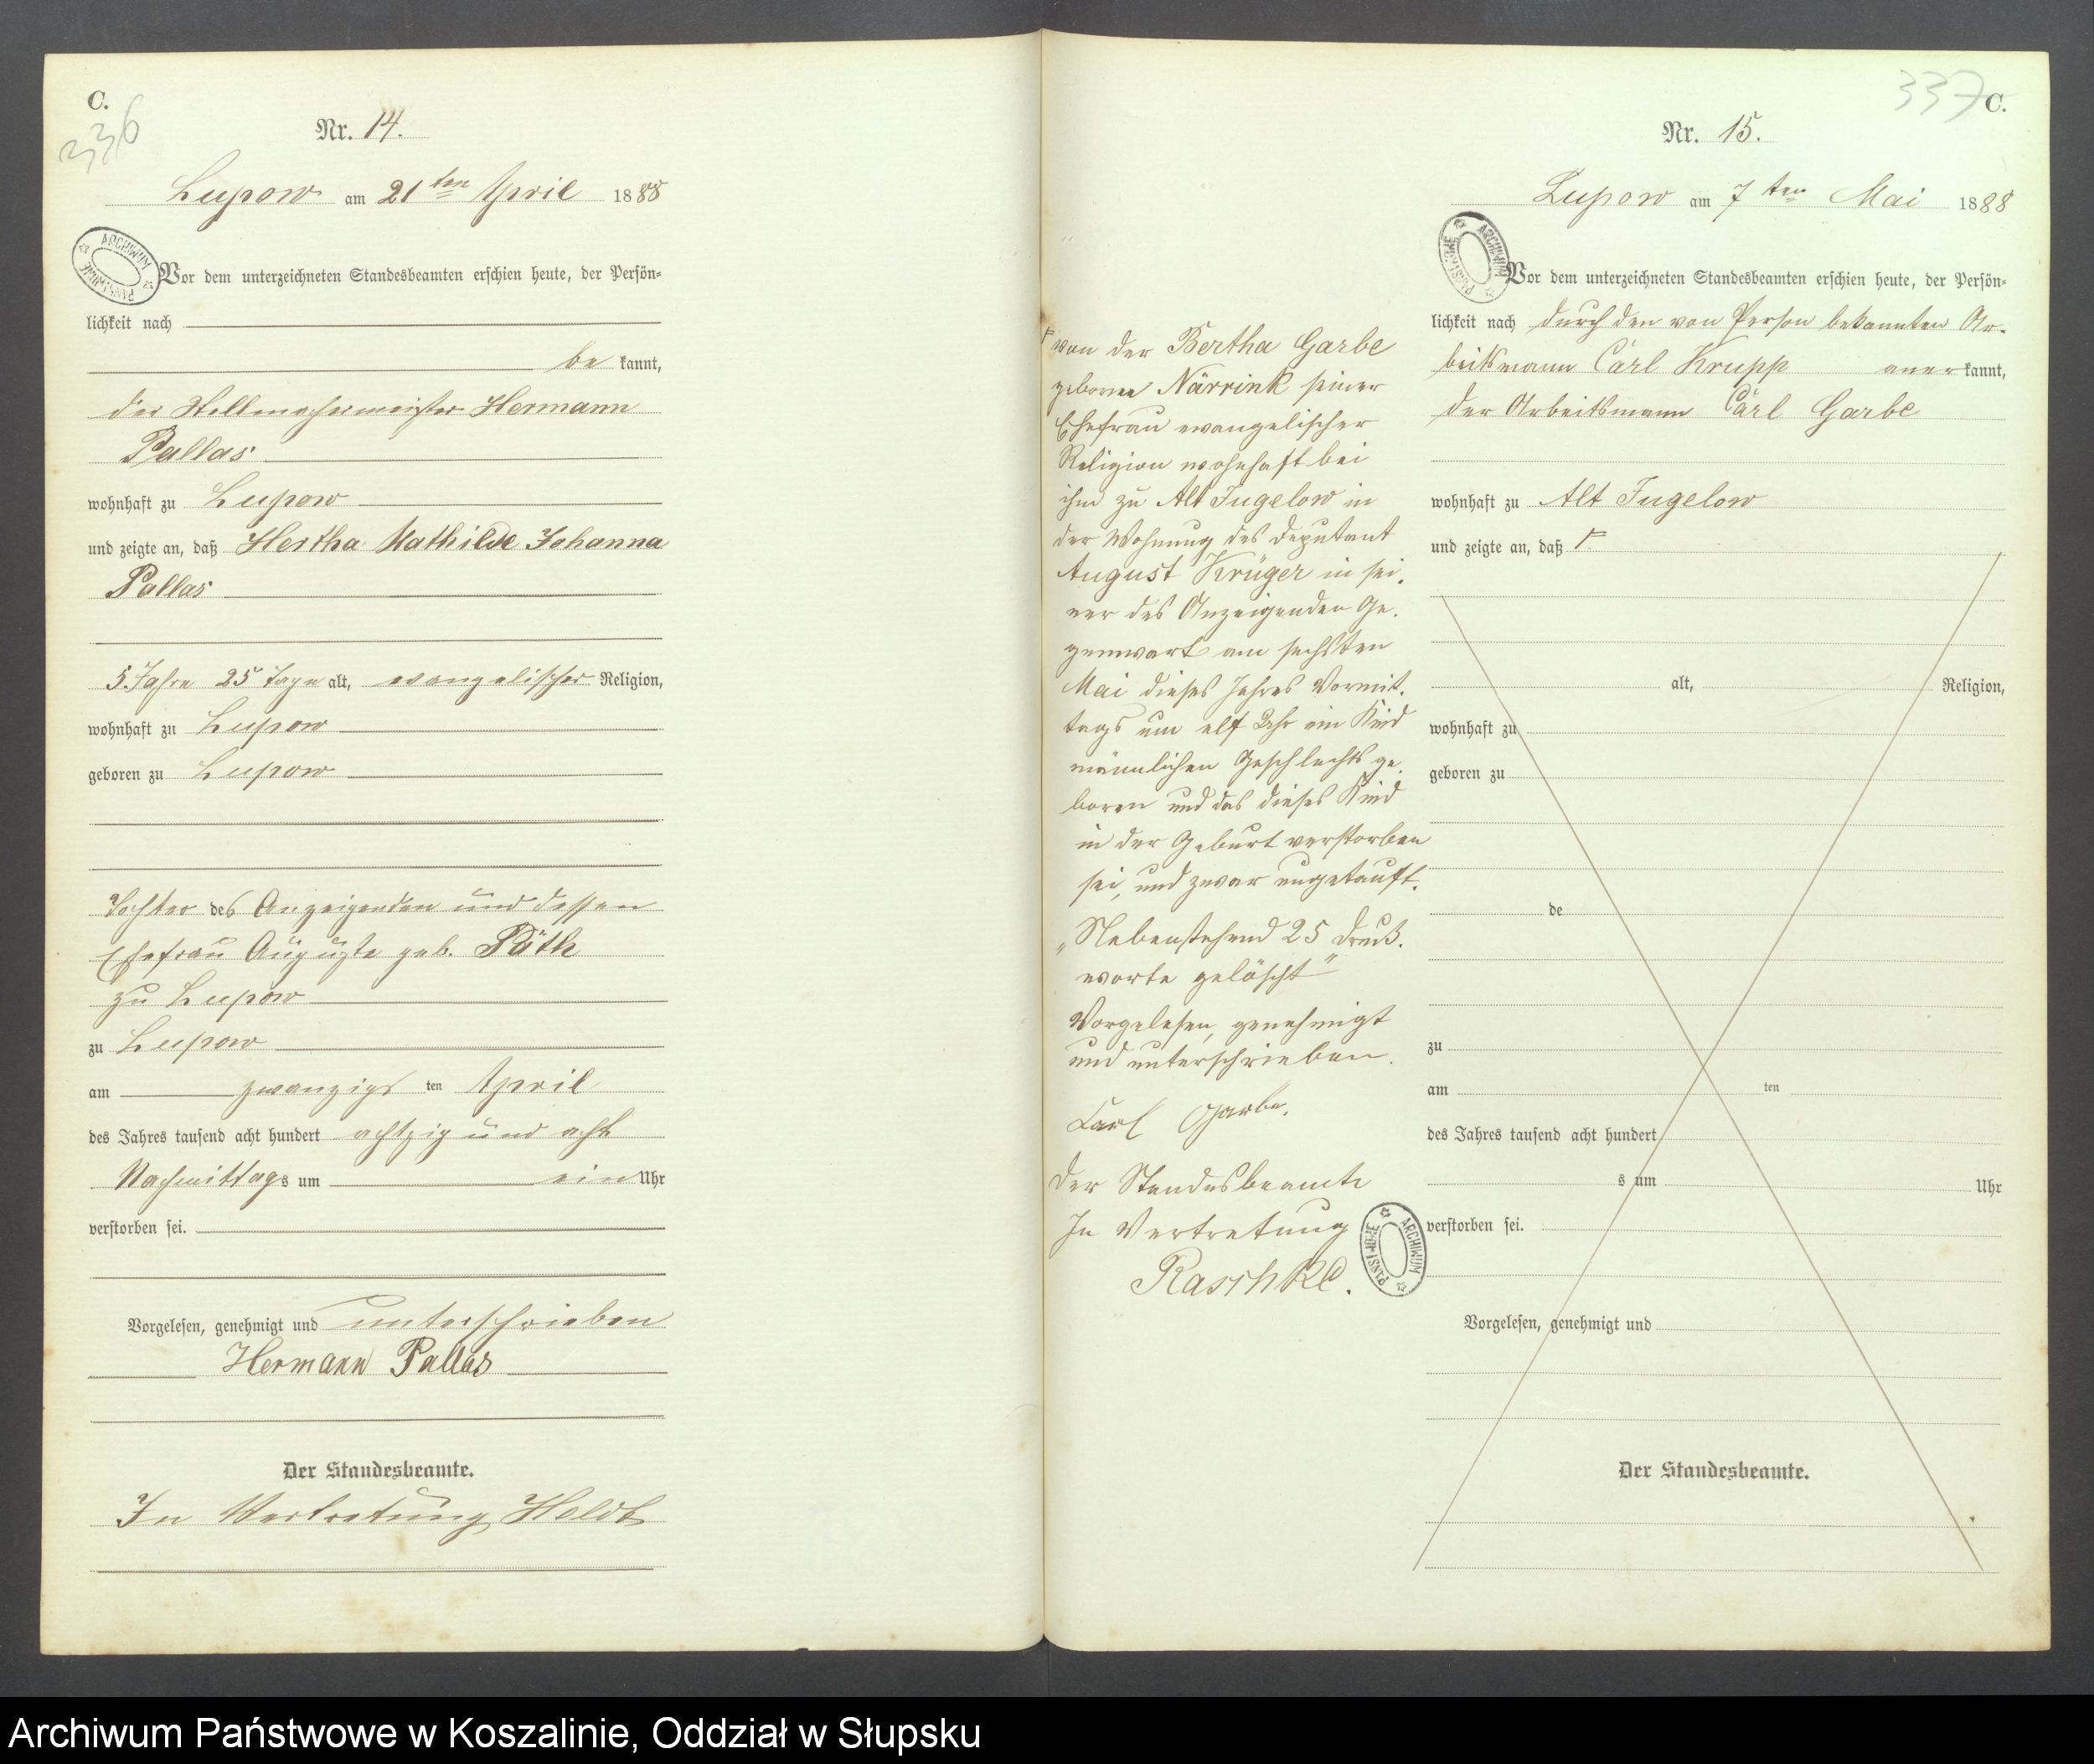 C.
336
Nr. 14.
Lupow am 21ten April 1888
ARCHIWUM PAŃSTWOWE
Vor dem unterzeichneten Standesbeamten erschien heute, der Persön-
lichkeit nach
be kannt,
der Stellmachermeister Hermann
Pallas
wohnhaft zu Lupow
und zeigte an, daß Hertha Mathilde Johanna
Pallas
5 Jahre 25 Tage alt, evangelischer Religion,
wohnhaft zu Lupow
geboren zu Lupow
Tochter des Anzeigenden und dessen
Ehefrau Auguste geb. Päth
zu Lupow
zu Lupow
am zwanzigs ten April
des Jahres tausend acht hundert achtzig und acht
Nachmittags um ein Uhr
verstorben sei.
Vorgelesen, genehmigt und unterschrieben
Hermann Pallas
Der Standesbeamte.
In Vertretung Heldt
337
C.
Nr. 15.
Lupow am 7ten Mai 1888
ARCHIWUM PAŃSTWOWE
Vor dem unterzeichneten Standesbeamten erschien heute, der Persön-
lichkeit nach durch den von Person bekannten Ar-
beitsmann Carl Krupp aner kannt,
der Arbeitsmann Carl Garbe
wohnhaft zu Alt Jugelow
und zeigte an, daß
alt, Religion,
wohnhaft zu
geboren zu
de
zu
am ten
des Jahres tausend acht hundert
s um Uhr
verstorben sei.
Vorgelesen, genehmigt und
Der Standesbeamte.
von der Bertha Garbe
geborne Närrink seiner
Ehefrau evangelischer
Religion wohnhaft bei
ihm zu Alt Jugelow in
der Wohnung des Deputant
August Krüger in sei-
ner des Anzeigenden Ge-
genwart am sechsten
Mai dieses Jahres Vormit-
tags um elf Uhr ein Kind
männlichen Geschlechts ge-
boren und das dieses Kind
in der Geburt verstorben
sei, und zwar ungetauft.
„Nebenstehend 25 Druck-
worte gelöscht"
Vorgelesen, genehmigt
und unterschrieben.
Carl Garbe.
Der Standesbeamte
In Vertretung
Raschke.
ARCHIWUM PAŃSTWOWE
Archiwum Państwowe w Koszalinie, Oddział w Słupsku